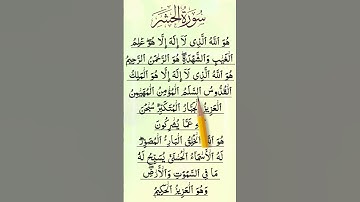 سُورَةُ الْحَشْرِ
هُوَ اللَّهُ الَّذِي لَا إِلَهَ إِلَّا هُوَ عَٰلِمُ
الْغَيْبِ وَالشَّهَٰدَةِ هُوَ الرَّحْمَٰنُ الرَّحِيمُ
هُوَ اللَّهُ الَّذِي لَا إِلَهَ إِلَّا هُوَ الْمَلِكُ
الْقُدُّوسُ السَّلَٰمُ الْمُؤْمِنُ الْمُهَيْمِنُ
الْعَزِيزُ الْجَبَّارُ الْمُتَكَبِّرُ سُبْحَٰنَ
عَمَّا يُشْرِكُونَ
هُوَ اللَّهُ الْخَٰلِقُ الْبَارِئُ الْمُصَوِّرُ
لَهُ الْأَسْمَاءُ الْحُسْنَىٰ يُسَبِّحُ لَهُ
مَا فِي السَّمَٰوَٰتِ وَالْأَرْضِ
وَهُوَ الْعَزِيزُ الْحَكِيمُ